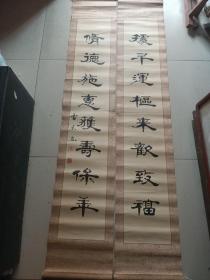 援平運樞來歡致福
脩德施惠獲壽保年